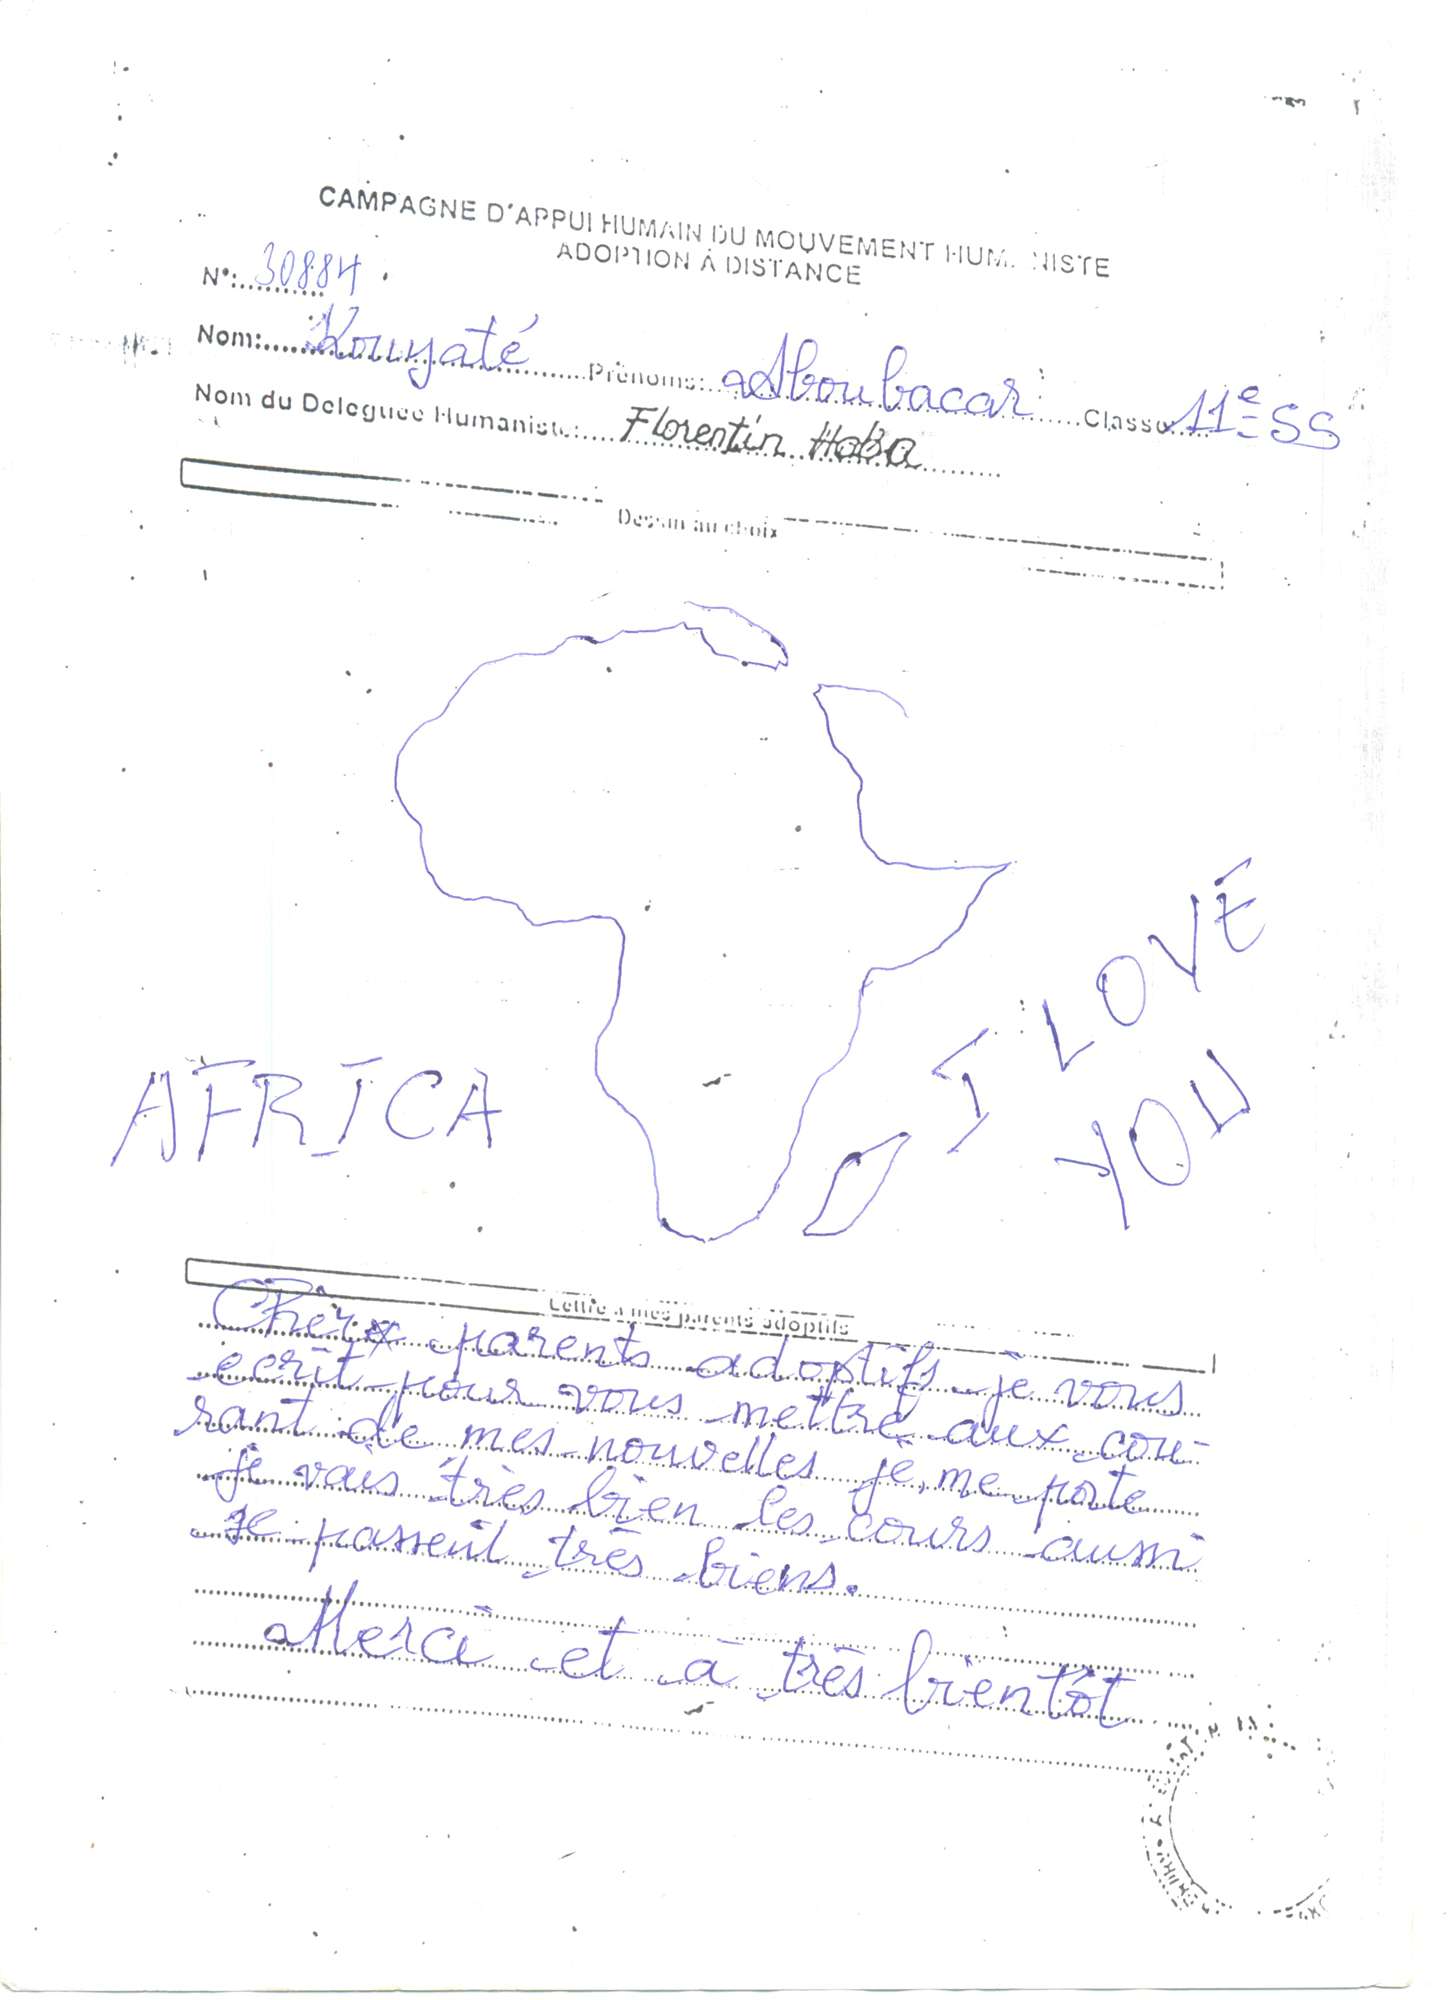 CAMPAGNE D'APPUI HUMAIN DU MOUVEMENT HUMANISTE
ADOPTION À DISTANCE
N°: 30884
Nom: Kouyaté Prénoms: Aboubacar Classe 11e SS
Nom du Délégué Humaniste: Florentin Haba
Dessin au choix
I LOVE
YOU
AFRICA
Lettre à mes parents adoptifs
Chèrx parents adoptifs je vous
ecrit pour vous mettre aux cou-
rant de mes nouvelles je me porte
je vais très bien les cours aussi
se passent très biens.
Merci et à très bientôt